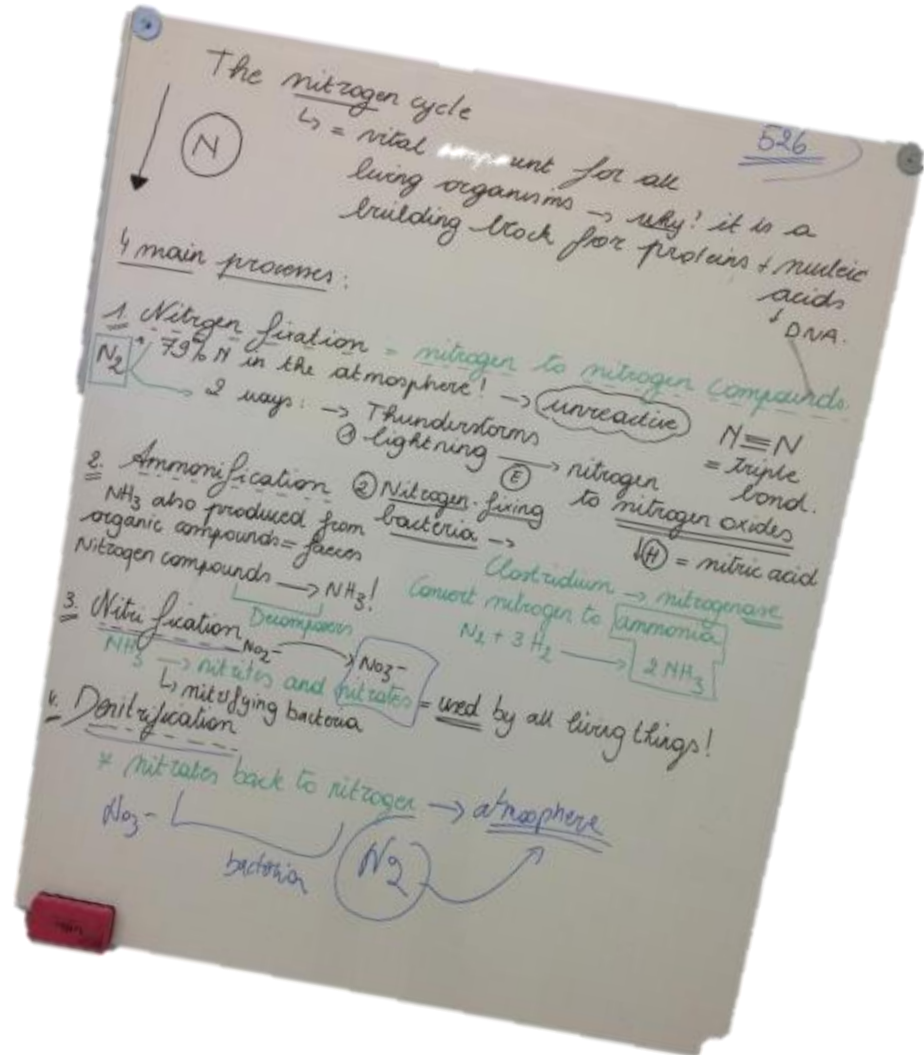 The nitrogen cycle
526
N
↳ = vital unt for all
living organisms → why? it is a
building block for proteins + nucleic
acids
↓ DNA.
4 main processes:
1. Nitrgen fixation = nitrogen to nitrogen compounds
N2
* 79% N in the atmosphere! → unreactive
N≡N
= triple
bond.
2 ways: → Thunderstorms
① lightning → nitrogen
Ⓔ
to nitrogen oxides
↓Ⓗ = nitric acid
② Nitrogen-fixing
bacteria →
Clostridium → nitrogenase
Convert nitrogen to ammonia
N2 + 3H2 → 2NH3
2. Ammonification
NH3 also produced from
organic compounds = faeces
Nitrogen compounds → NH3!
Decomposers
3. Nitrification
NO2- → NO3-
NH3 → nitrites and nitrates = used by all living things!
↳ nitrifying bacteria
4. Denitrification
* nitrates back to nitrogen → atmosphere
NO3-
bacteria
N2